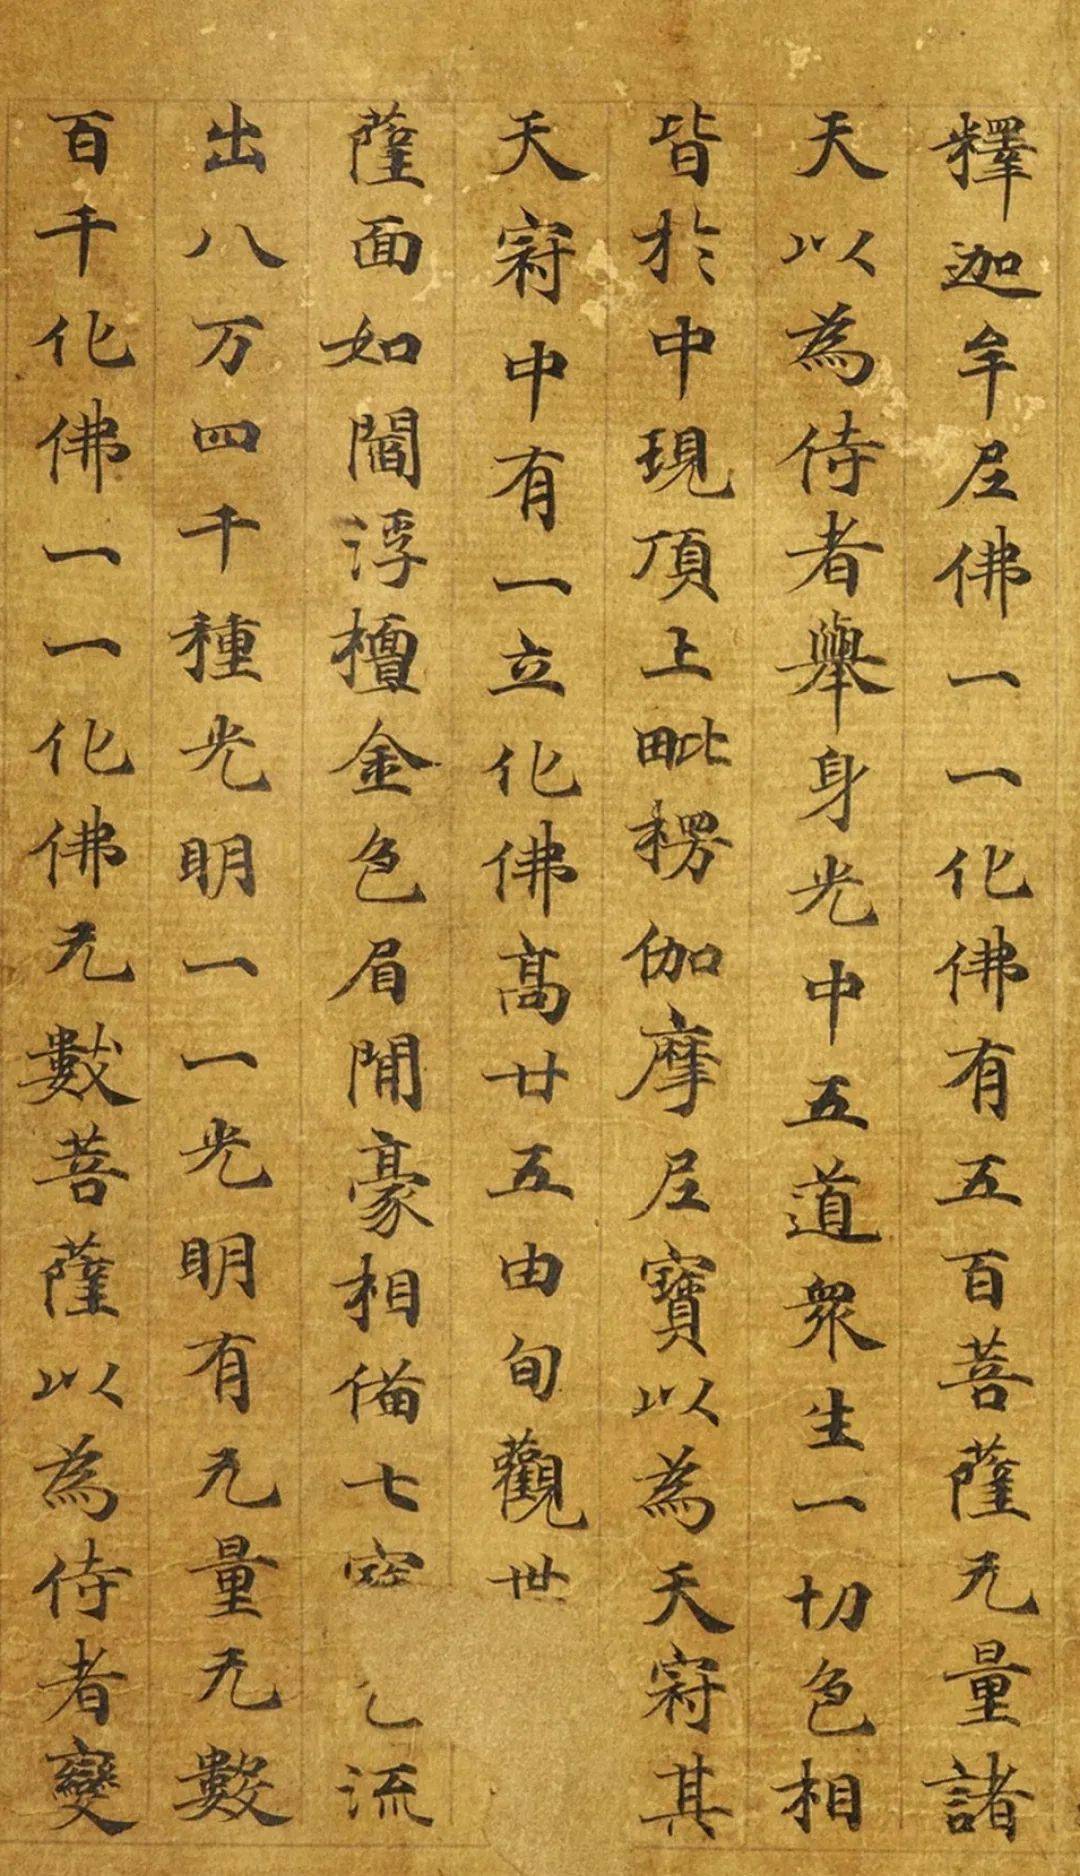 釋迦牟尼佛一一化佛有五百菩薩无量諸
天以為侍者舉身光中五道衆生一切色相
皆於中現頂上毗楞伽摩尼寶以為天冠其
天冠中有一立化佛高廿五由旬觀世
薩面如閻浮檀金色眉間豪相備七寶流
出八万四千種光明一一光明有无量无數
百千化佛一一化佛无數菩薩以為侍者變